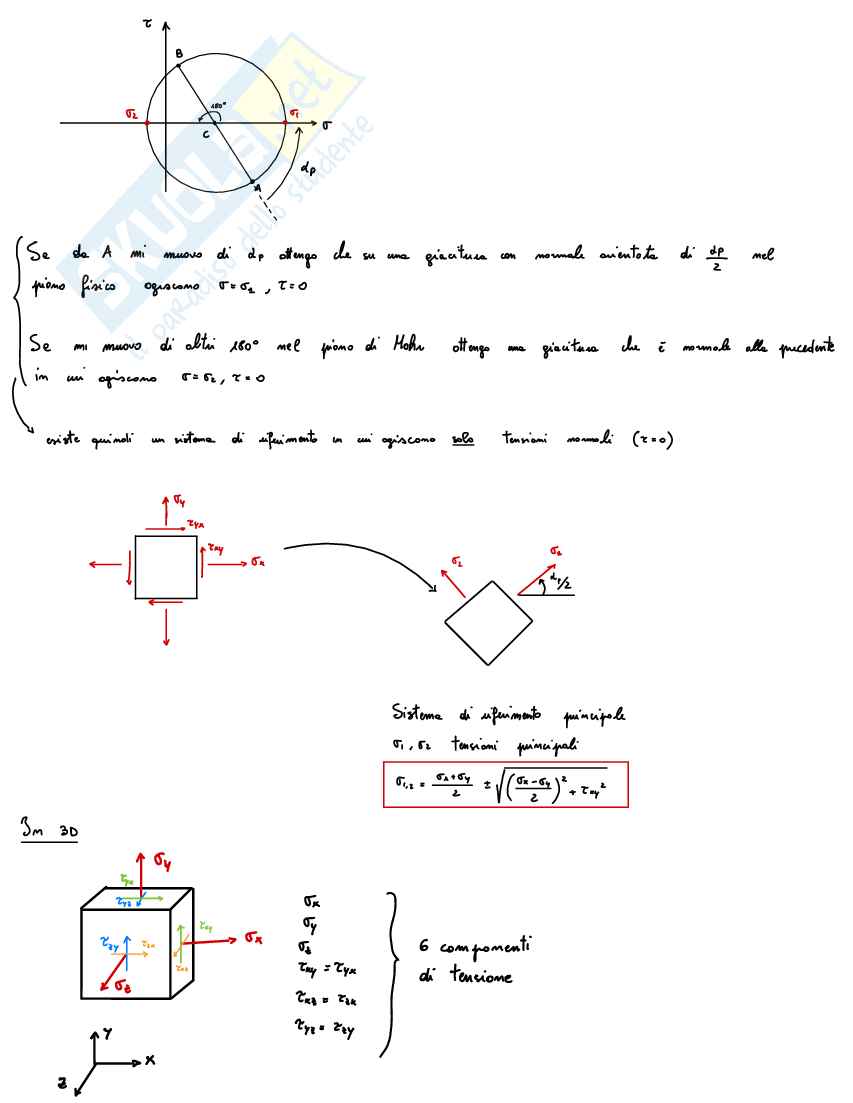 τ
B
σ₂
180°
σ₁
σ
C
αp
A
SKUOLA.net
il paradiso dello studente
Se da A mi muovo di αp ottengo che su una giacitura con normale orientata di αp/2 nel
piano fisico agiscono σ=σ₂ , τ=0
Se mi muovo di altri 180° nel piano di Mohr ottengo una giacitura che è normale alla precedente
in cui agiscono σ=σ₂, τ=0
esiste quindi un sistema di riferimento in cui agiscono solo tensioni normali (τ=0)
σy
τyx
τxy
σx
σ₂
αp/2
Sistema di riferimento principale
σ₁, σ₂ tensioni principali
σ₁,₂ = (σx+σy)/2 ± √(((σx-σy)/2)² + τxy²)
In 3D
σy
τyx
τyz
τxy
τzy
τzx
σx
τxz
σz
σx
σy
σz
τxy = τyx
τxz = τzx
τyz = τzy
6 componenti
di tensione
y
x
z